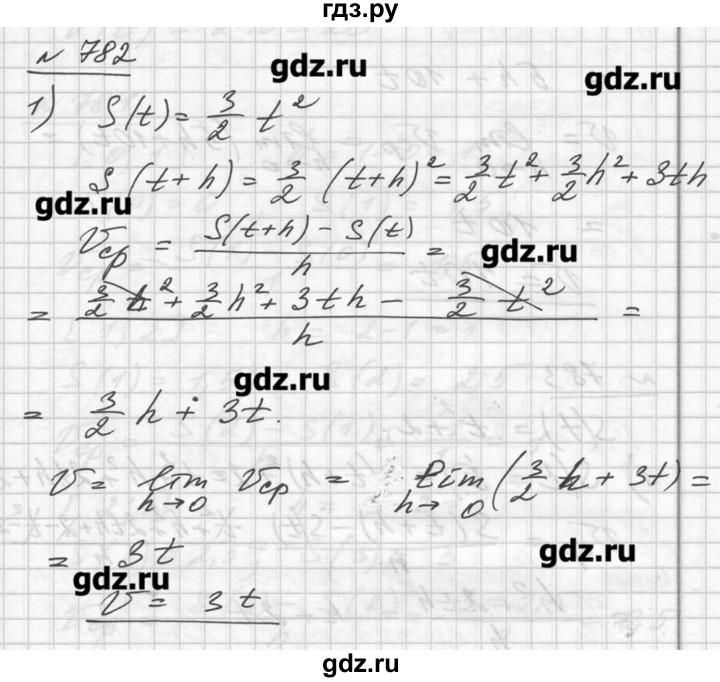 гдз.ру
№ 782
gdz.ru
gdz.ru
1) S(t) = 3/2 t²
S(t+h) = 3/2 (t+h)² = 3/2 t² + 3/2 h² + 3th
gdz.ru
Vср = (S(t+h) - S(t))/h =
gdz.ru
= (3/2 t² + 3/2 h² + 3th - 3/2 t²)/h =
gdz.ru
= 3/2 h + 3t.
V = lim h→0 Vср = lim h→0 (3/2 h + 3t) =
gdz.ru
= 3t
gdz.ru
V = 3t
gdz.ru